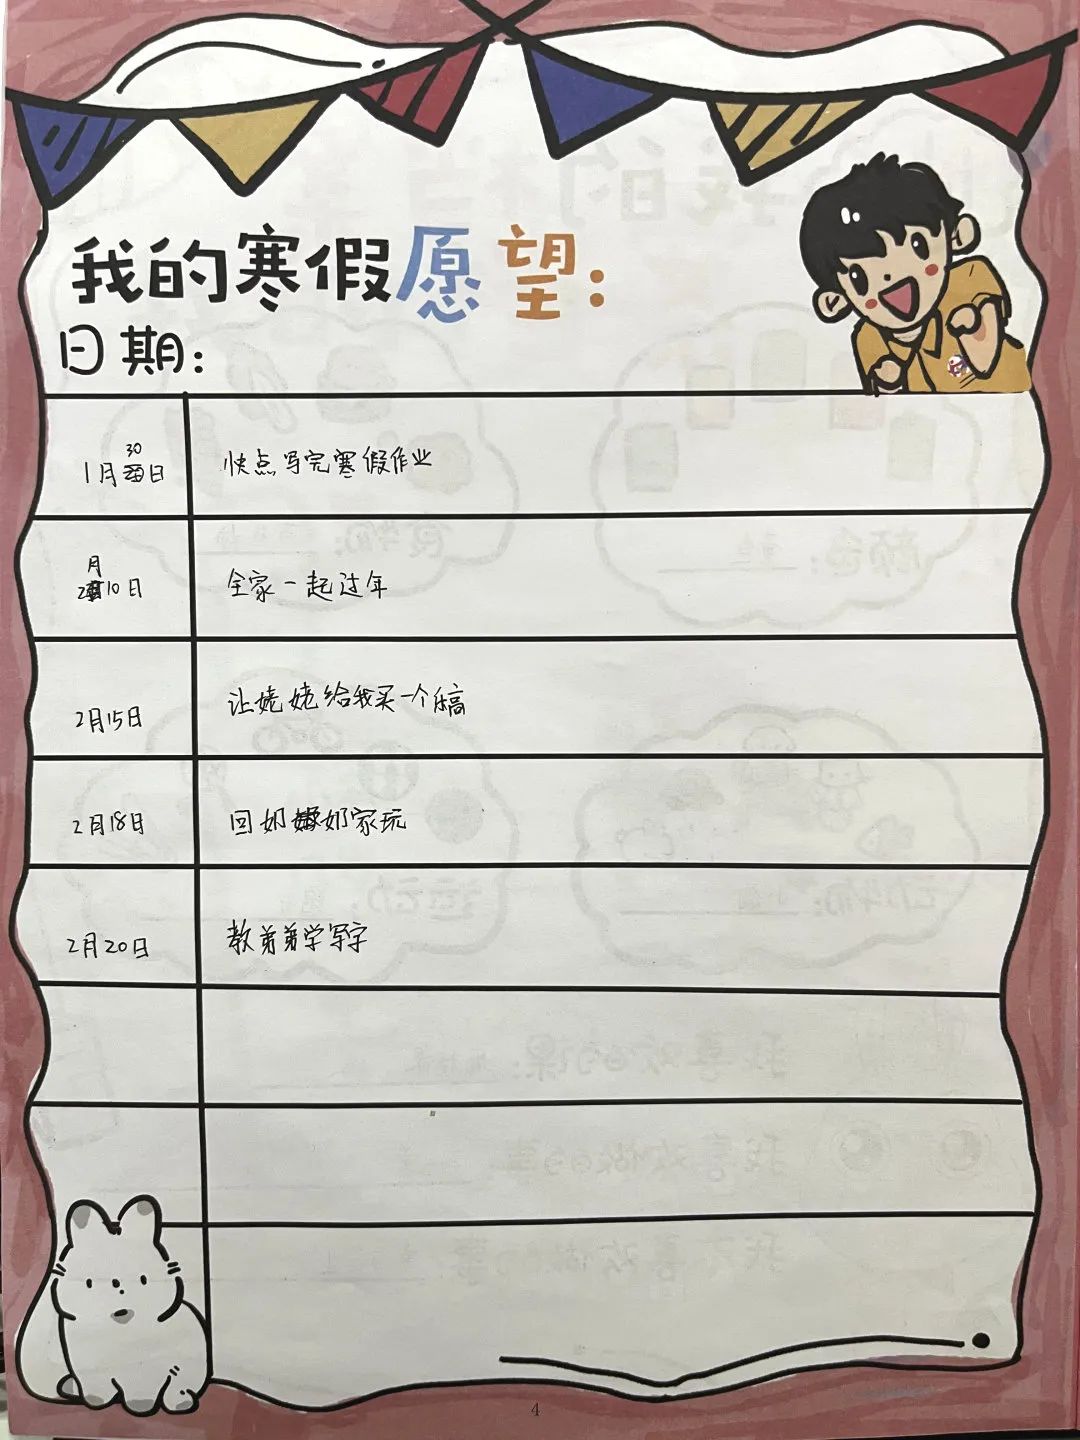 我的寒假愿望:
日期:
1月30日 快点写完寒假作业
2月10日 全家一起过年
2月15日 让姥姥给我买一个
2月18日 回奶奶家玩
2月20日 教弟弟学写字
4